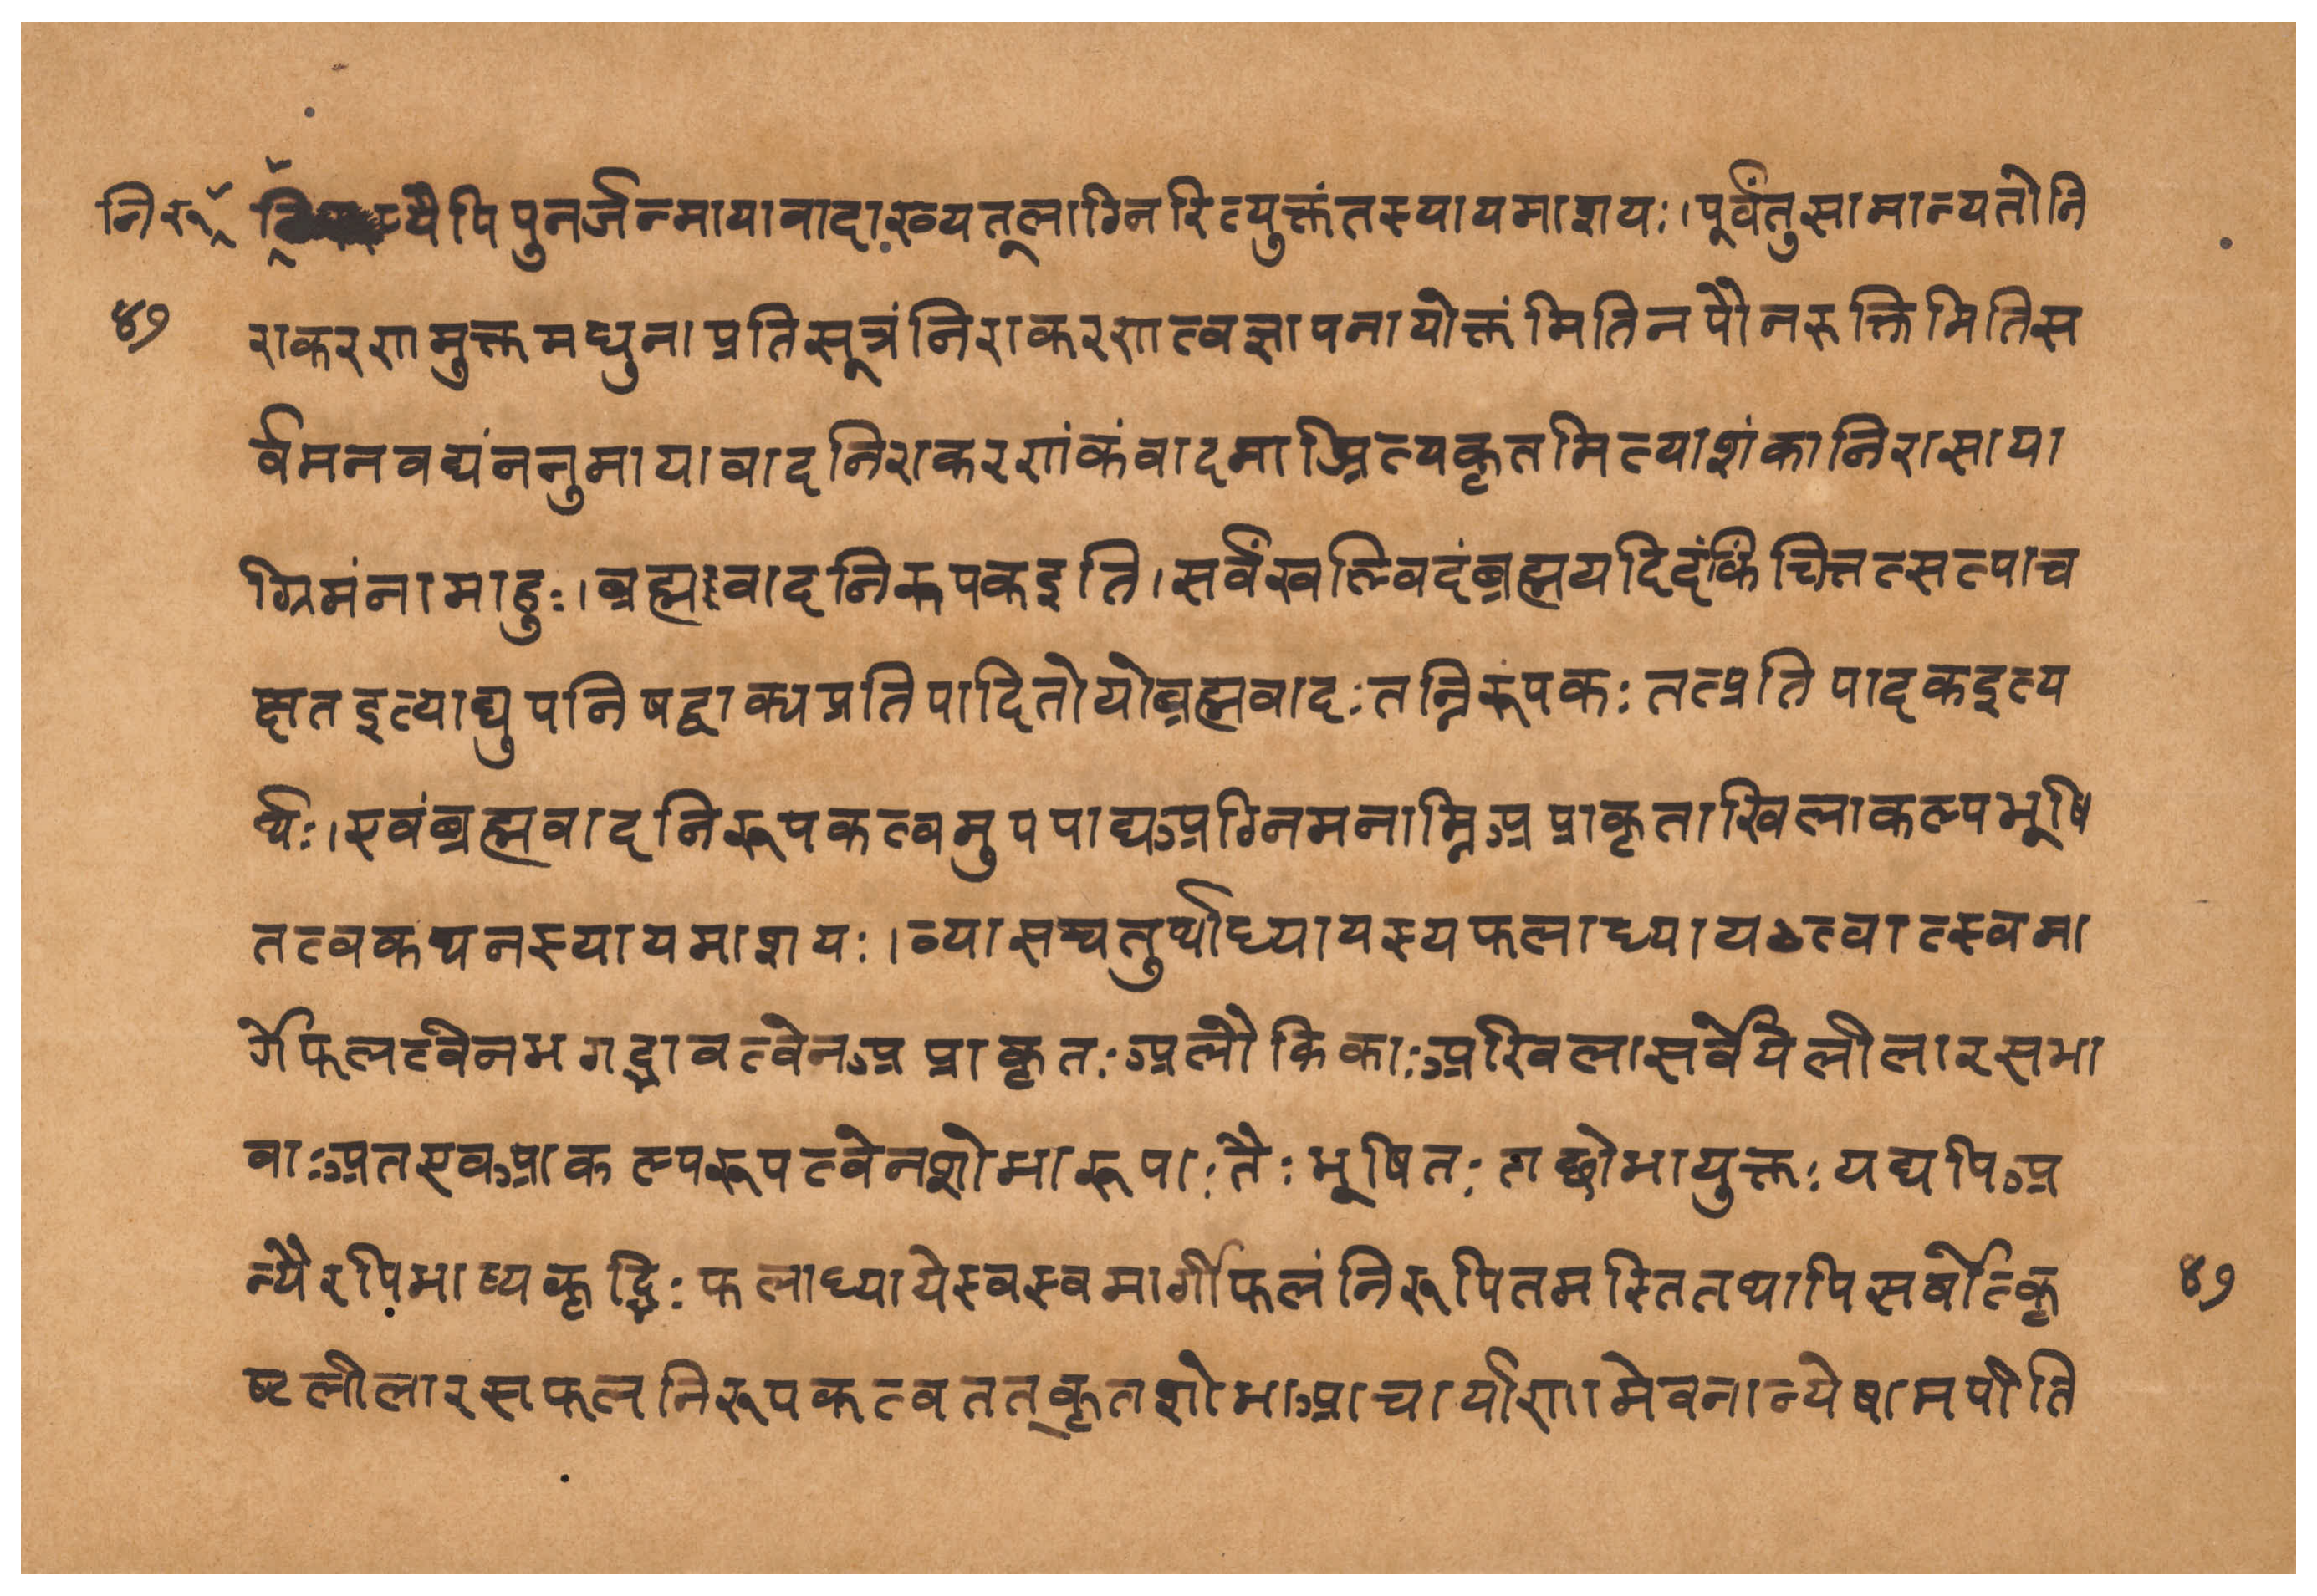 निरू प्यैपिपुनर्जन्मायावादाख्यतूलाग्निरित्युक्तंतस्यायमाशयः।पूर्वंतुसामान्यतोनि
४७ राकरणमुक्तमधुनाप्रतिसूत्रंनिराकरणत्वज्ञापनायोक्तंमितिनपौनरुक्तिमितिस
र्वमनवद्यंननुमायावादनिराकरणंकंवादमाश्रित्यकृतमित्याशंकानिरासाया
ग्रिमंनामाहुः।ब्रह्मवादनिरूपकइति।सर्वंखल्विदंब्रह्मयदिदंकिंचित्तत्सत्पाच
क्षतइत्याद्युपनिषद्वाक्यप्रतिपादितोयोब्रह्मवादःतन्निरूपकःतत्प्रतिपादकइत्य
र्थः।एवंब्रह्मवादनिरूपकत्वमुपपाद्यअग्निमनाम्निअप्राकृताखिलाकल्पभूषि
तत्वकथनस्यायमाशयः।व्यासचतुर्थाध्यायस्यफलाध्यायत्वात्स्वमा
र्गेफलत्वेनभगद्भावत्वेनअप्राकृतःअलौकिकाःअखिलासर्वेयेलीलारसभा
वाःअतएवआकल्परूपत्वेनशोभारूपाःतैःभूषितःतच्छोभायुक्तःयद्यपिअ
न्यैरपिभाष्यकृद्भिःफलाध्यायेस्वस्वमार्गीफलंनिरूपितमस्तितथापिसर्वोत्कृ ४७
ष्टलीलारसफलनिरूपकत्वतत्कृतशोभाआचार्याणामेवनान्येषामपीति